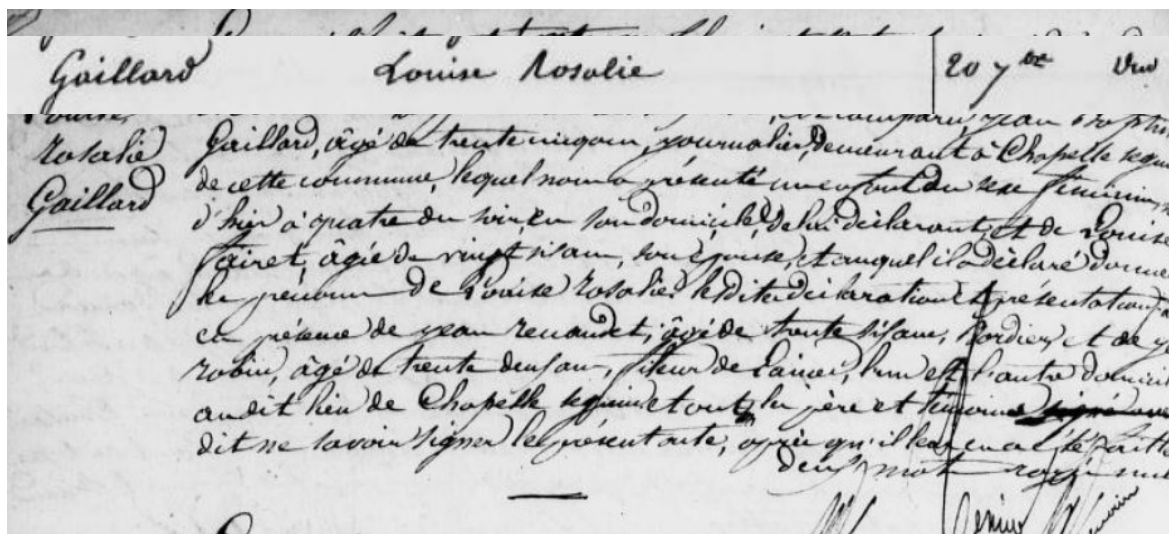 Gaillard Louise Rosalie 20 7bre
Rosalie
Gaillard
comparu, jean
Gaillard, âgé de trente cinq ans, journalier, demeurant à Chapelle
de cette commune, lequel nous a présenté un enfant du sexe féminin,
d'hier à quatre du soir, en son domicile, de lui déclarant et de Louise
âgée de vingt six ans, son épouse, et auquel il a déclaré donner
les prénoms de Louise Rosalie. Lesdites déclaration et présentation
en présence de jean renaudet, âgé de trente six ans, Bordier, et de
robin, âgé de trente deux ans, fileur de Laines, l'un et l'autre
audit lieu de Chapelle et ont, les père et témoins
dit ne savoir signer le présent acte, après qu'il leur en a été fait
deux mots